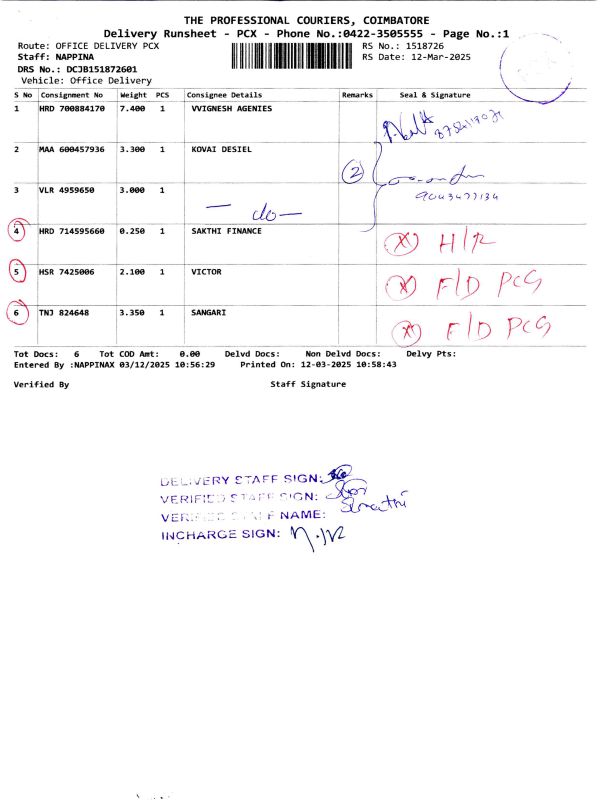 THE PROFESSIONAL COURIERS, COIMBATORE
Delivery Runsheet - PCX - Phone No.:0422-3505555 - Page No.:1
Route: OFFICE DELIVERY PCX RS No.: 1518726
Staff: NAPPINA RS Date: 12-Mar-2025
DRS No.: DCJB151872601
Vehicle: Office Delivery
S No Consignment No Weight PCS Consignee Details Remarks Seal & Signature
1 HRD 700884170 7.400 1 VVIGNESH AGENIES
2 MAA 600457936 3.300 1 KOVAI DESIEL 2
3 VLR 4959650 3.000 1 — do — 9043477134
4 HRD 714595660 0.250 1 SAKTHI FINANCE X H/R
5 HSR 7425006 2.100 1 VICTOR X F/D PCG
6 TNJ 824648 3.350 1 SANGARI X F/D PCG
Tot Docs: 6 Tot COD Amt: 0.00 Delvd Docs: Non Delvd Docs: Delvy Pts:
Entered By :NAPPINAX 03/12/2025 10:56:29 Printed On: 12-03-2025 10:58:43
Verified By Staff Signature
DELIVERY STAFF SIGN:
VERIFIED STAFF SIGN:
VERIFIED STAFF NAME:
INCHARGE SIGN: